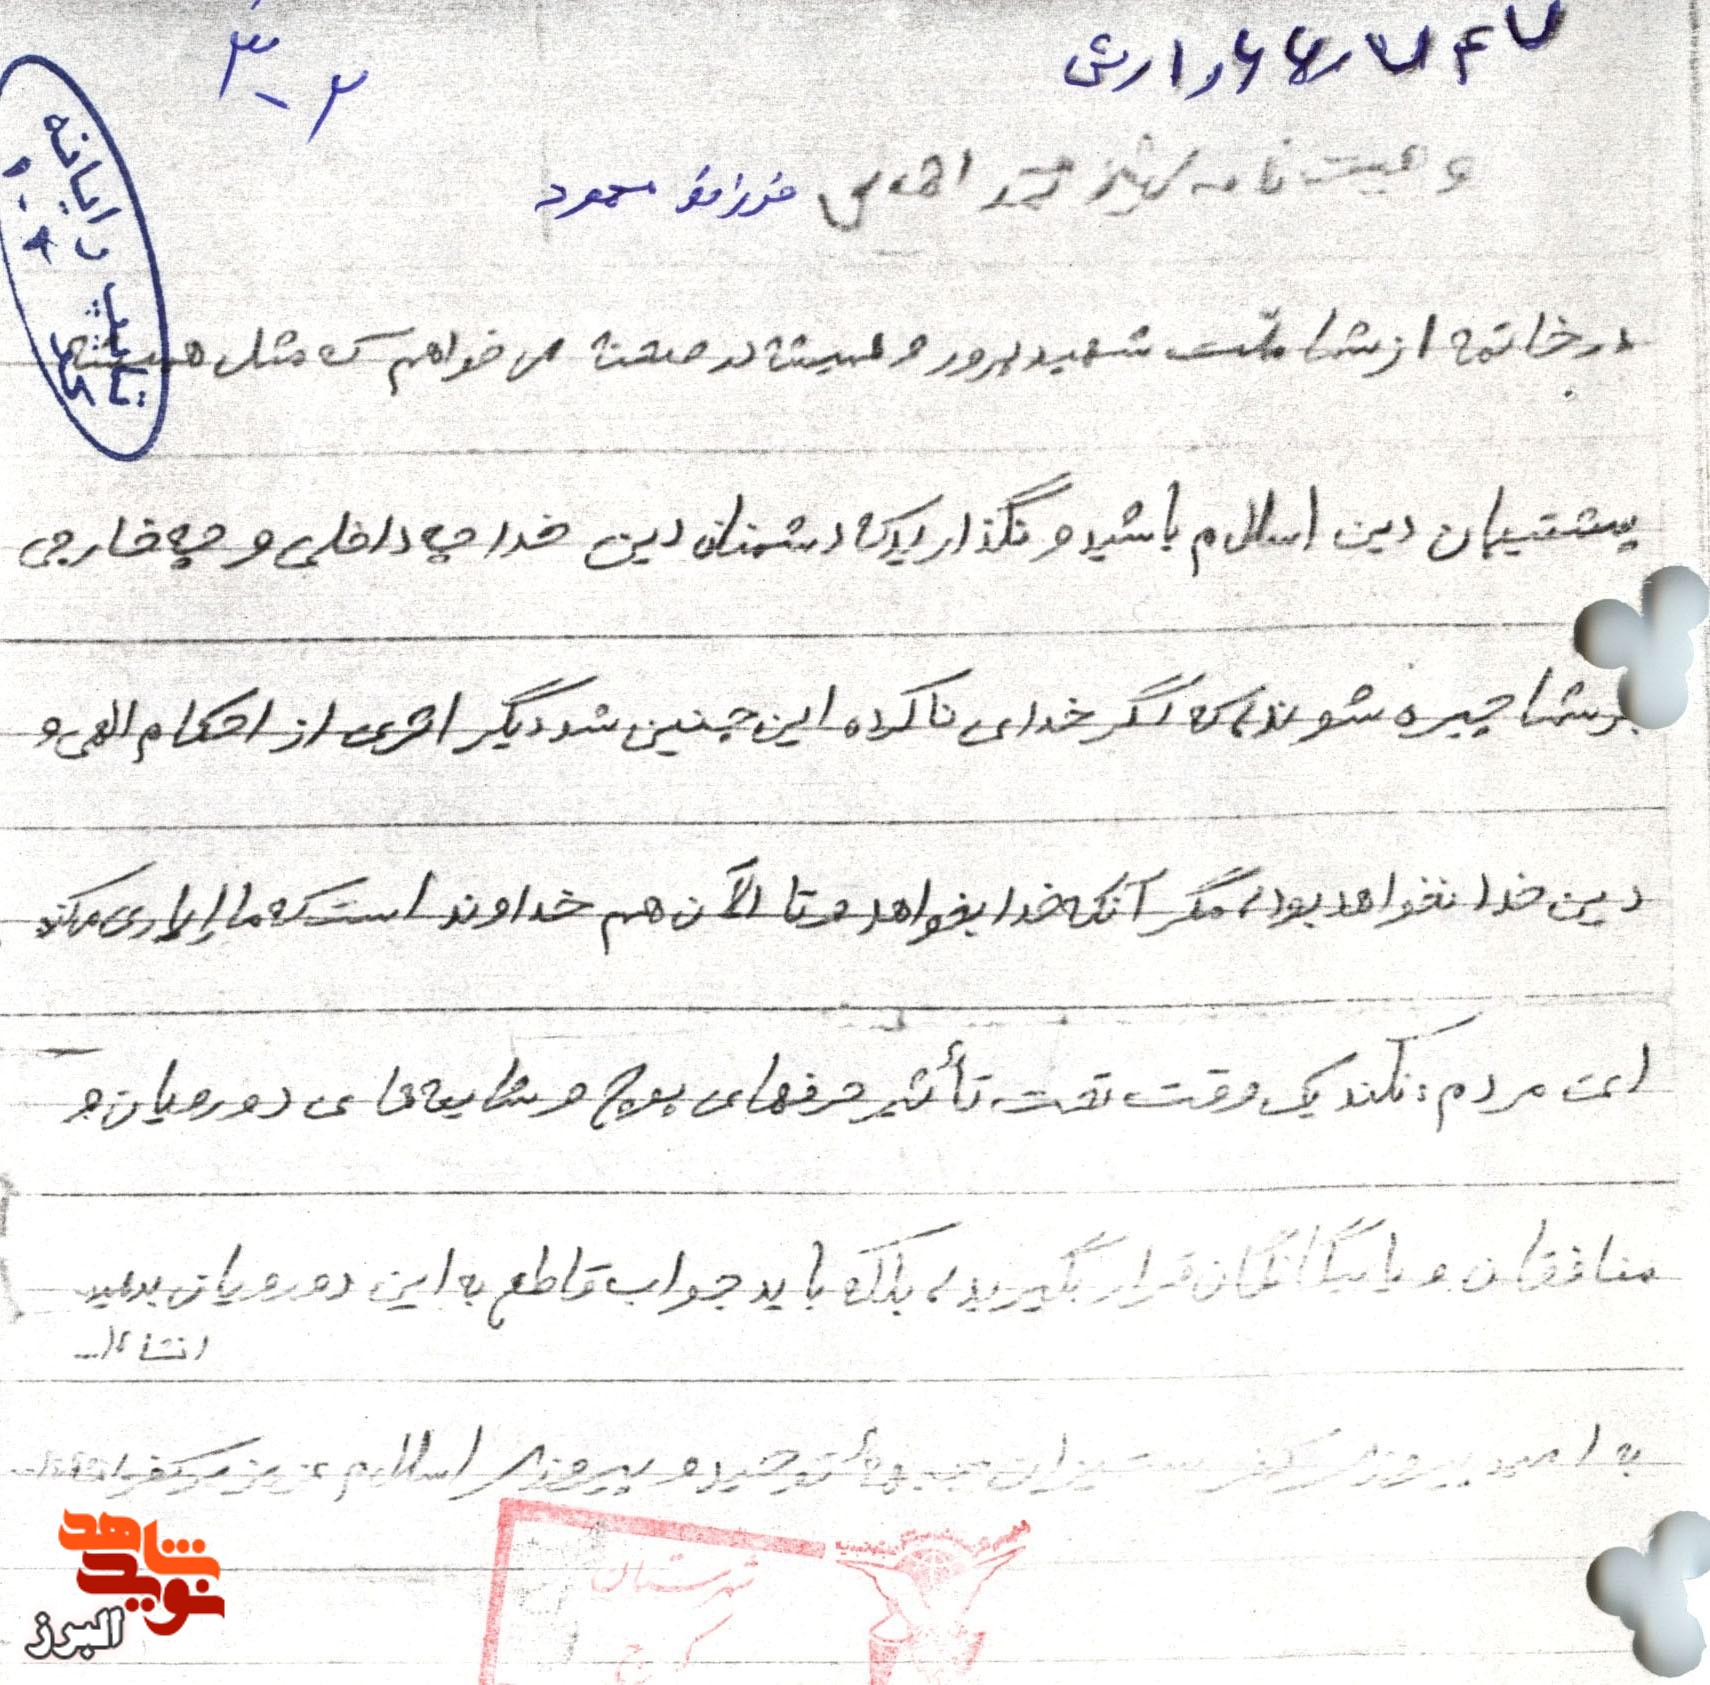 ۳-۲
وصیت نامه شهید محمد الهامی فرزند محمود
در خاتمه از شما ملت شهید پرور و همیشه در صحنه می خواهم که مثل همیشه
پشتیبان دین اسلام باشید و نگذارید که دشمنان دین خدا چه داخلی و چه خارجی
بر شما چیره شوند، که اگر خدای ناکرده این چنین شد دیگر اثری از احکام الهی و
دین خدا نخواهد بود، مگر آنکه خدا بخواهد و تا الآن هم خداوند است که ما را یاری میکند
ای مردم: نکند یک وقت تحت تأثیر حرفهای پوچ و شایعه های دورویان و
منافقان و یا بیگانگان قرار بگیرید، بلکه باید جواب قاطع به این دورویان بدهید
انشاءا...
به امید پیروزی کفر ستیزان جبههٔ توحید و پیروزی اسلام عزیز بر کفر
تایپ رایانه
شهرستان
کرج
شاهد
نوید
البرز